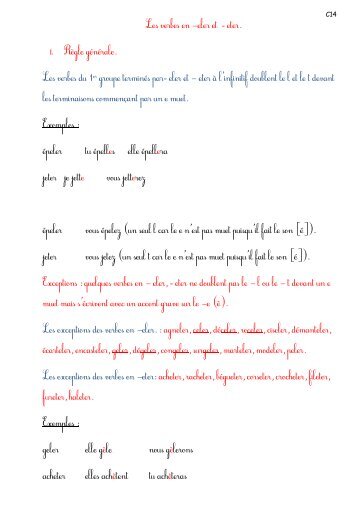 C14
Les verbes en -eler et -eter.
1. Règle générale.
Les verbes du 1er groupe terminés par -eler et -eter à l'infinitif doublent le l et le t devant
les terminaisons commençant par un e muet.
Exemples :
épeler tu épelles elle épellera
jeter je jette vous jetterez
épeler vous épelez (un seul l car le e n'est pas muet puisqu'il fait le son [é]).
jeter vous jetez (un seul t car le e n'est pas muet puisqu'il fait le son [é]).
Exceptions : quelques verbes en -eler, -eter ne doublent pas le -l ou le -t devant un e
muet mais s'écrivent avec un accent grave sur le -e (è).
Les exceptions des verbes en -eler : agneler, celer, déceler, receler, ciseler, démanteler,
écarteler, encasteler, geler, dégeler, congeler, surgeler, marteler, modeler, peler.
Les exceptions des verbes en -eter : acheter, racheter, bégueter, corseter, crocheter, fileter,
fureter, haleter.
Exemples :
geler elle gèle nous gèlerons
acheter elles achètent tu achèteras